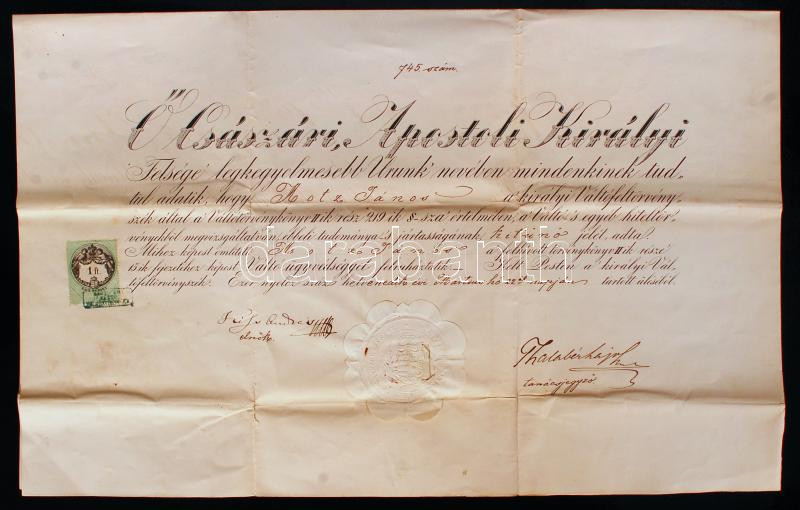 745. szám.
Ő Császári, Apostoli Királyi
Felsége legkegyelmesebb Urunk nevében mindenkinek tud-
tul adatik, hogy Hotz János a királyi Váltófeltörvény-
szék által a Váltótörvénykönyv II ik rész 219 ik §-sza értelmében, a Váltó s egyéb hiteltör-
vényekből megvizsgáltatván, ebbeli tudománya s jártasságának jelét adta.
Mihez képest említett János a feltörvénykönyv II ik része
15 ik fejezetéhez képest Váltó ügyvédséggel felruháztatik. Kelt Pesten a királyi Vál-
tófeltörvényszék Ezer nyolcz száz évi hó napján tartott üléséből.
1 fl.
elnök
tanácsjegyző
darabanth